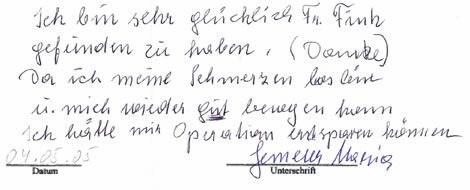 Ich bin sehr glücklich Fr. Fink
gefunden zu haben. (Danke)
Da ich meine Schmerzen los bin
u. mich wieder gut bewegen kann
Ich hätte mir Operation ersparen können
04.05.05
Datum Unterschrift